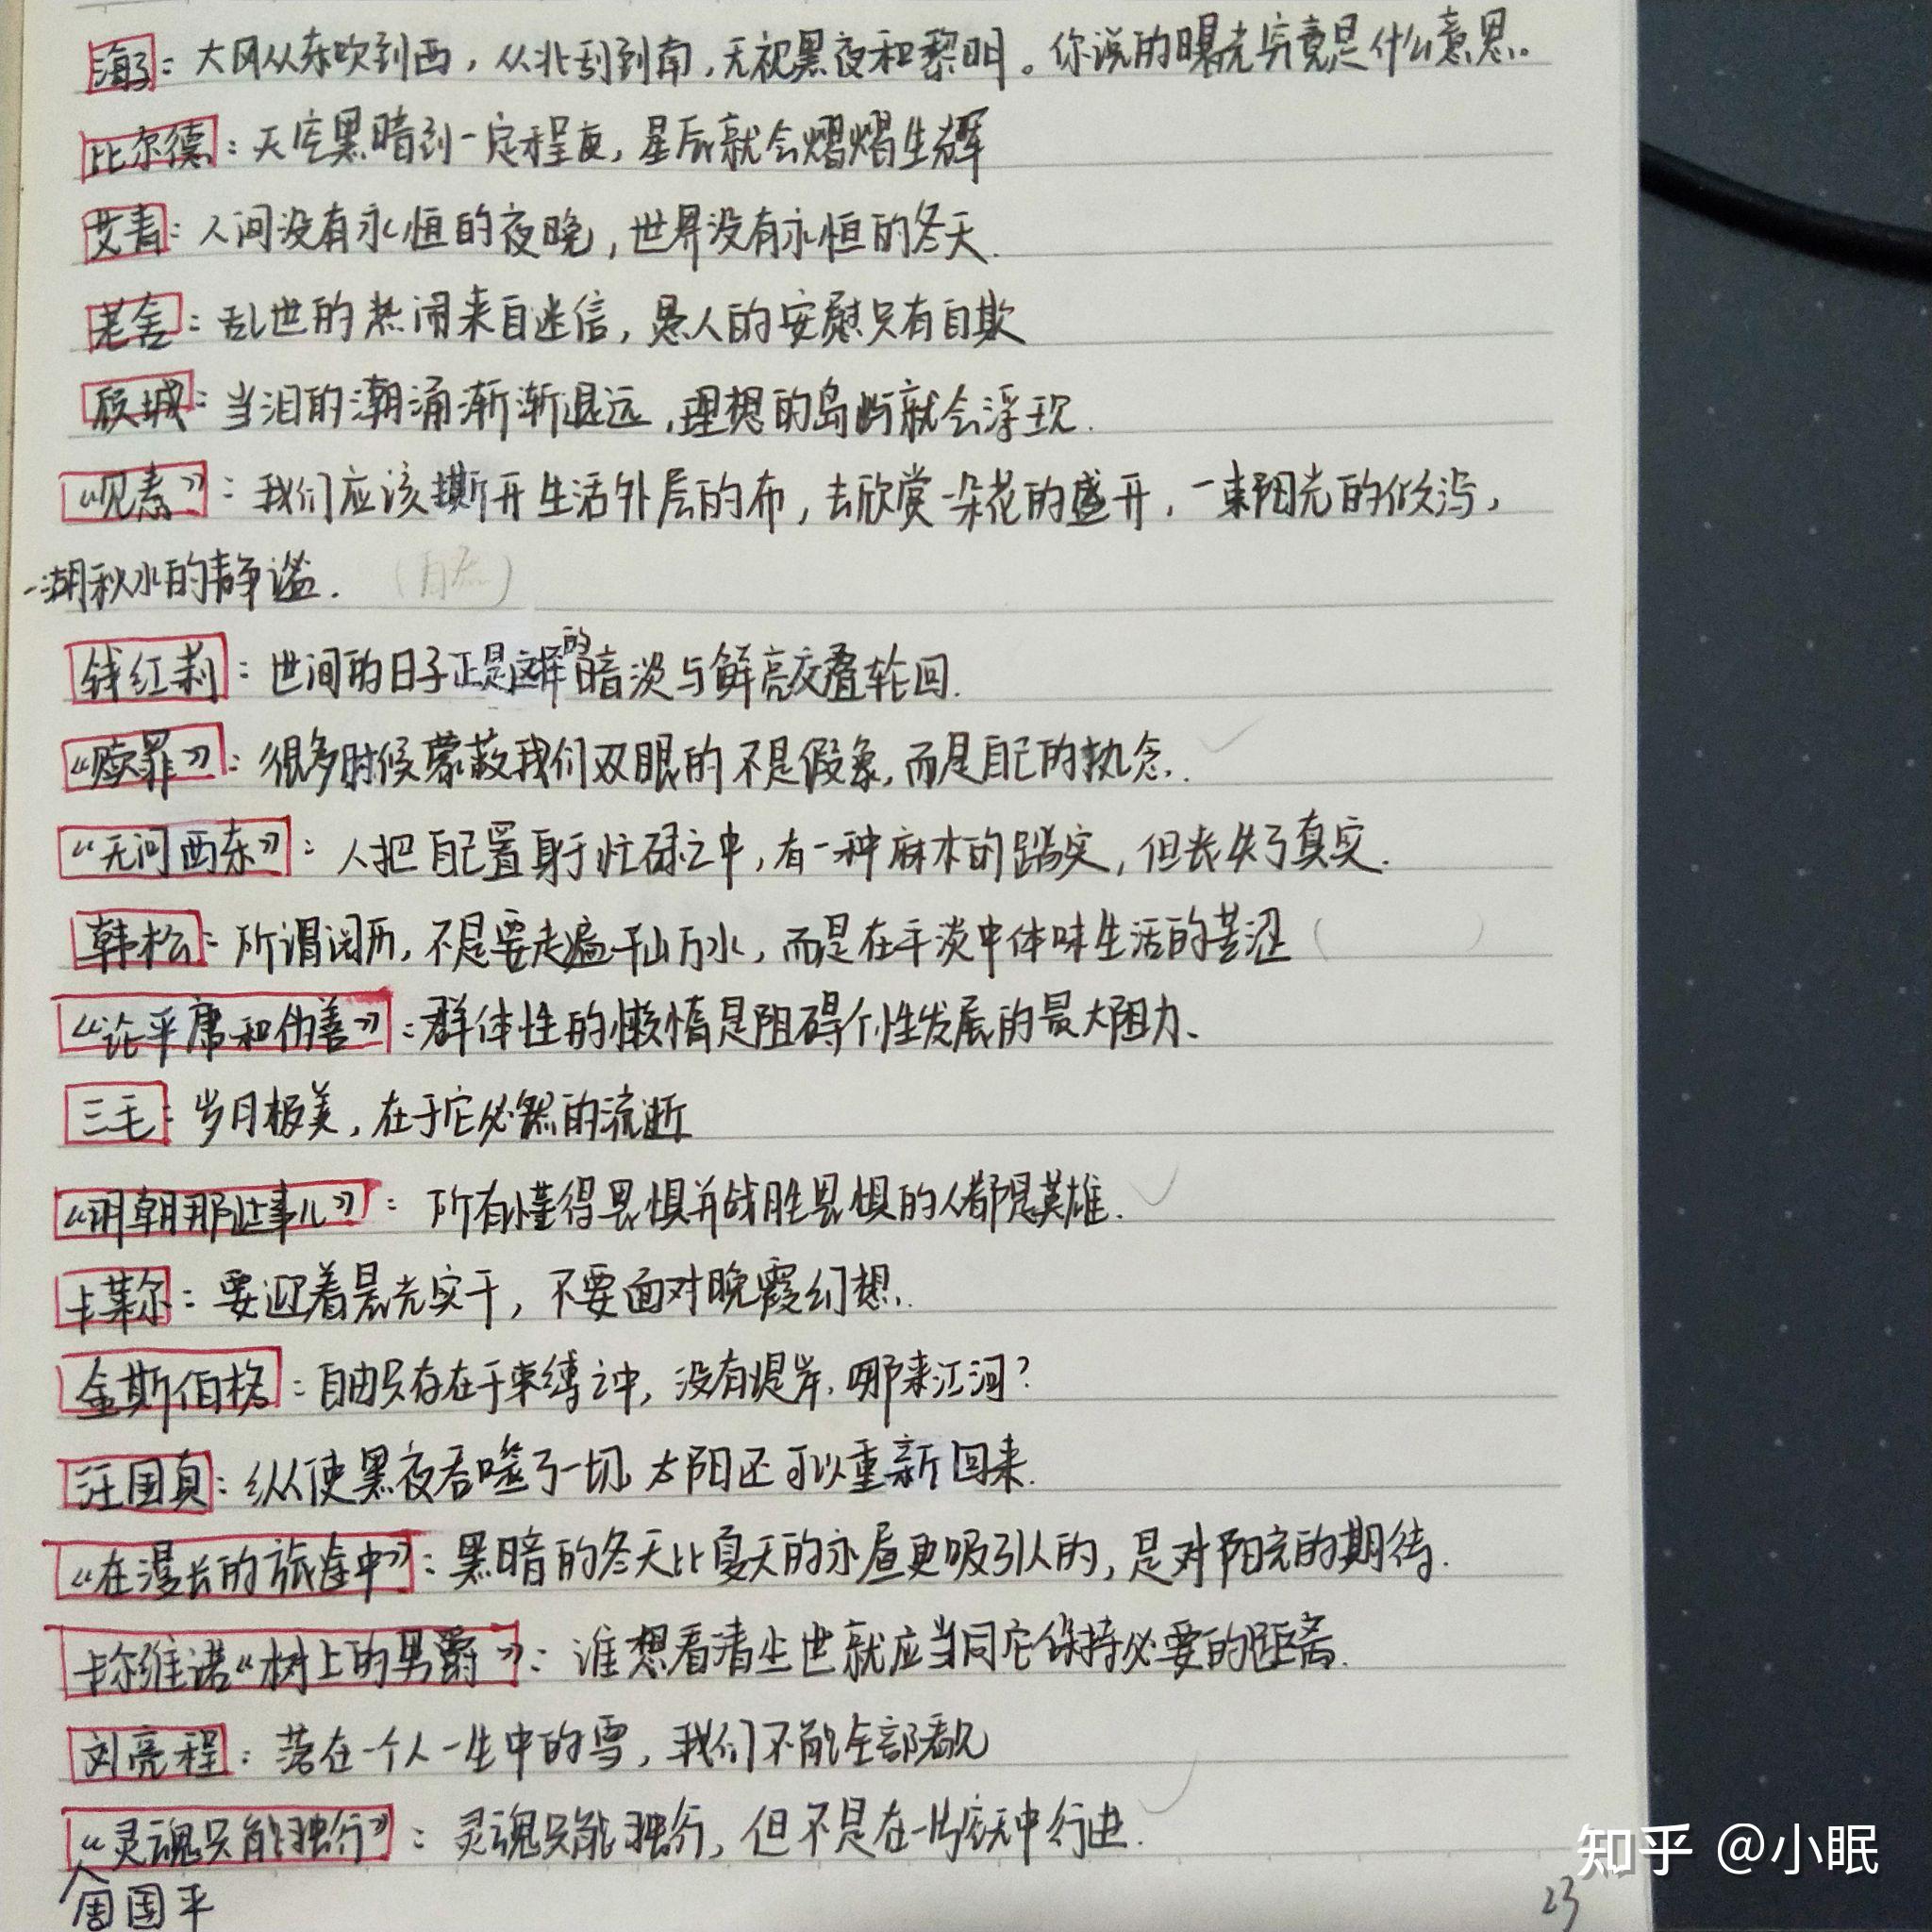 海子：大风从东吹到西，从北刮到南，无视黑夜和黎明。你说的曙光究竟是什么意思。
比尔德：天空黑暗到一定程度，星辰就会熠熠生辉
艾青：人间没有永恒的夜晚，世界没有永恒的冬天.
老舍：乱世的热闹来自迷信，愚人的安慰只有自欺
顾城：当泪的潮涌渐渐退远，理想的岛屿就会浮现.
《见素》：我们应该撕开生活外层的布，去欣赏一朵花的盛开，一束阳光的倾泻，
一湖秋水的静谧. （自然）
钱红莉：世间的日子正是这样的暗淡与鲜亮交叠轮回.
《赎罪》：很多时候蒙蔽我们双眼的不是假象，而是自己的执念.
《无问西东》：人把自己置身于忙碌之中，有一种麻木的踏实，但丧失了真实.
韩松：所谓阅历，不是要走遍千山万水，而是在平淡中体味生活的苦涩（ ）
《论平庸和伪善》：群体性的懒惰是阻碍个性发展的最大阻力、
三毛：岁月极美，在于它必然的流逝
《明朝那些事儿》：所有懂得畏惧并战胜畏惧的人都是英雄.
卡莱尔：要迎着晨光实干，不要面对晚霞幻想.
金斯伯格：自由只存在于束缚之中，没有堤岸，哪来江河？
汪国真：纵使黑夜吞噬了一切 太阳还可以重新回来.
《在漫长的旅途中》：黑暗的冬天比夏天的永昼更吸引人的，是对阳光的期待.
卡尔维诺《树上的男爵》：谁想看清尘世就应当同它保持必要的距离.
刘亮程：落在一个人一生中的雪，我们不能全部看见
《灵魂只能独行》：灵魂只能独行，但不是在一片虚无中行进.
周国平
23
知乎 @小眠